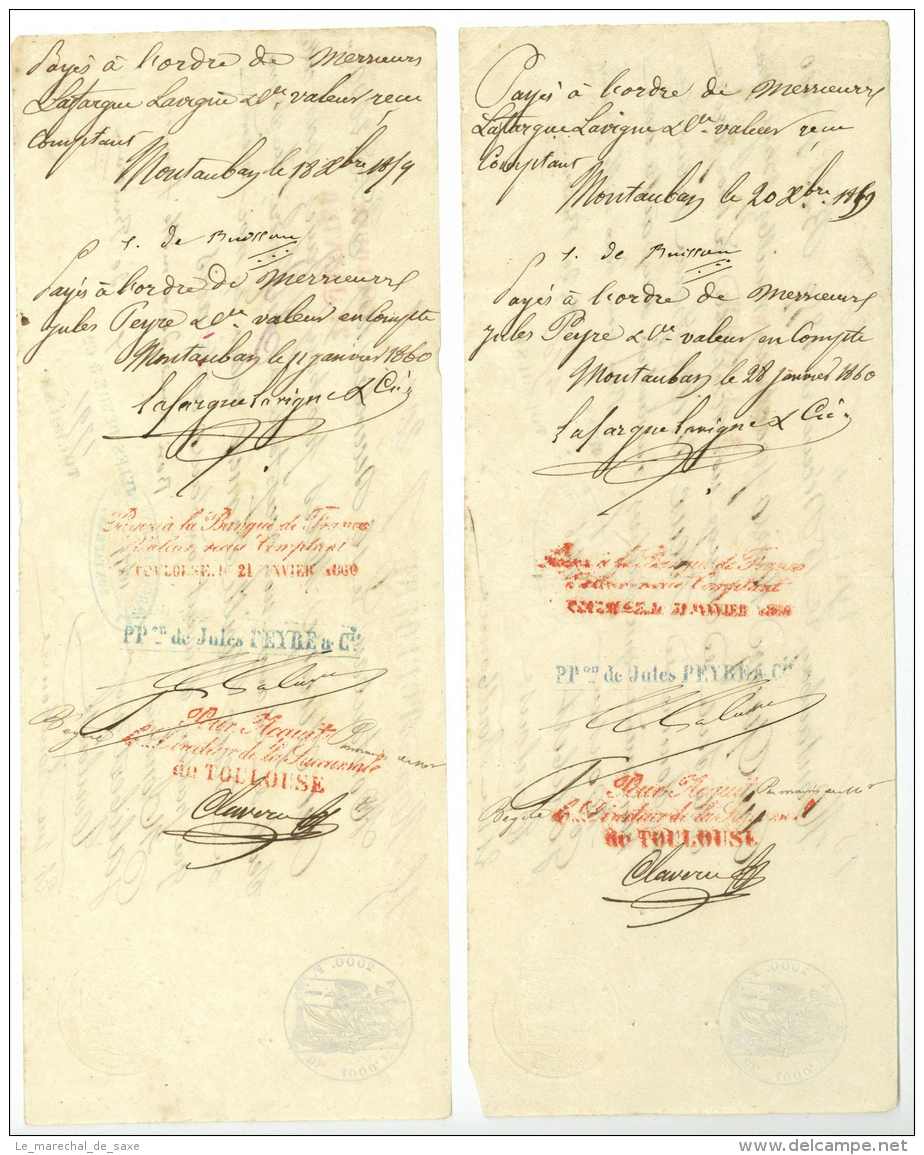 Payés à l'ordre de Messieurs
Lafargue Lavigne & Cie valeur reçu
Comptant
Montauban le 18 Xbre 1859
S. de Buisson
Payés à l'ordre de Messieurs
Jules Peyre & Cie valeur en Compte
Montauban le 11 janvier 1860
Lafargue Lavigne & Cie
à la Banque de France
Valeur reçue Comptant
TOULOUSE, le 21 JANVIER 1860
PPon de Jules PEYRE & Cie
Pour Acquit
Le Directeur de la Succursale
de TOULOUSE
Claverie
2000. F
Payés à l'ordre de Messieurs
Lafargue Lavigne & Cie valeur reçu
Comptant
Montauban le 20 Xbre 1859
S. de Buisson
Payés à l'ordre de Messieurs
Jules Peyre & Cie valeur en Compte
Montauban le 28 janvier 1860
Lafargue Lavigne & Cie
à la Banque de France
Valeur reçue Comptant
TOULOUSE, le 31 JANVIER 1860
PPon de Jules PEYRE & Cie
Pour Acquit
Le Directeur de la
de TOULOUSE
Claverie
2000. F
Le_marechal_de_saxe
www.delcampe.net